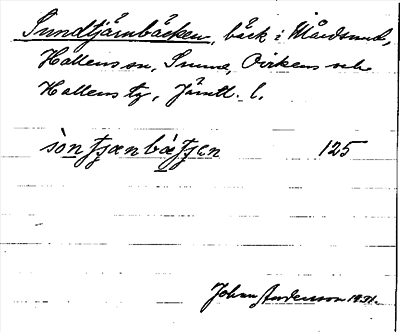 Sundtjärnbäcken, bäck i Mårdsund,
Hallens sn, Sunne, Ovikens och
Hallens tg, Jämtl. l.
sòntʃænbætʃen 125
Johan Andersson 1931.